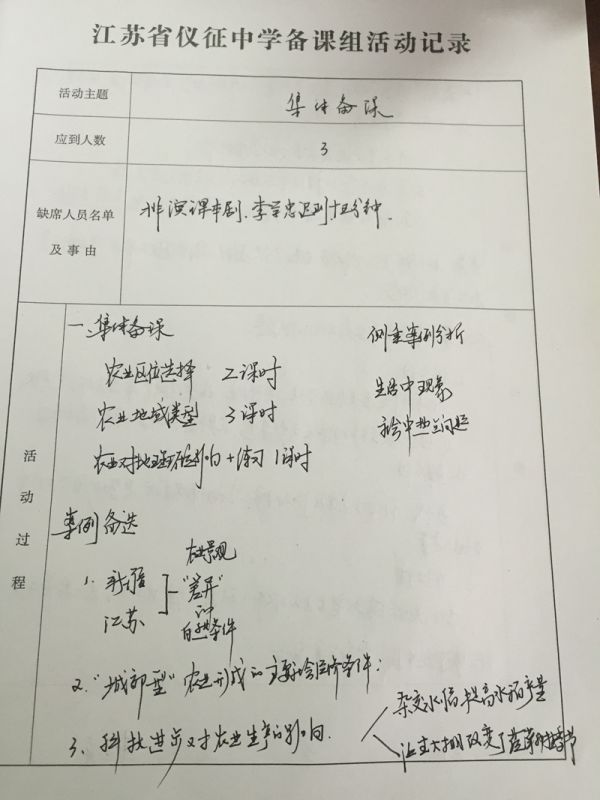 江苏省仪征中学备课组活动记录
活动主题
集体备课
应到人数
3
缺席人员名单
及事由
排演课本剧.李学忠迟到十五分钟.
活动过程
一.集体备课
农业区位选择 2课时
农业地域类型 3课时
农业对地理环境影响+练习 1课时
侧重案例分析
生活中现象
社会中热点问题
案例备选
1. 新疆
江苏
农业景观
"差异"
的
自然条件
2. "城郊型"农业形成的主要社会经济条件;
3、科技进步对农业生产的影响.
杂交水稻提高水稻产量
让主大棚改变了蔬菜种植季节